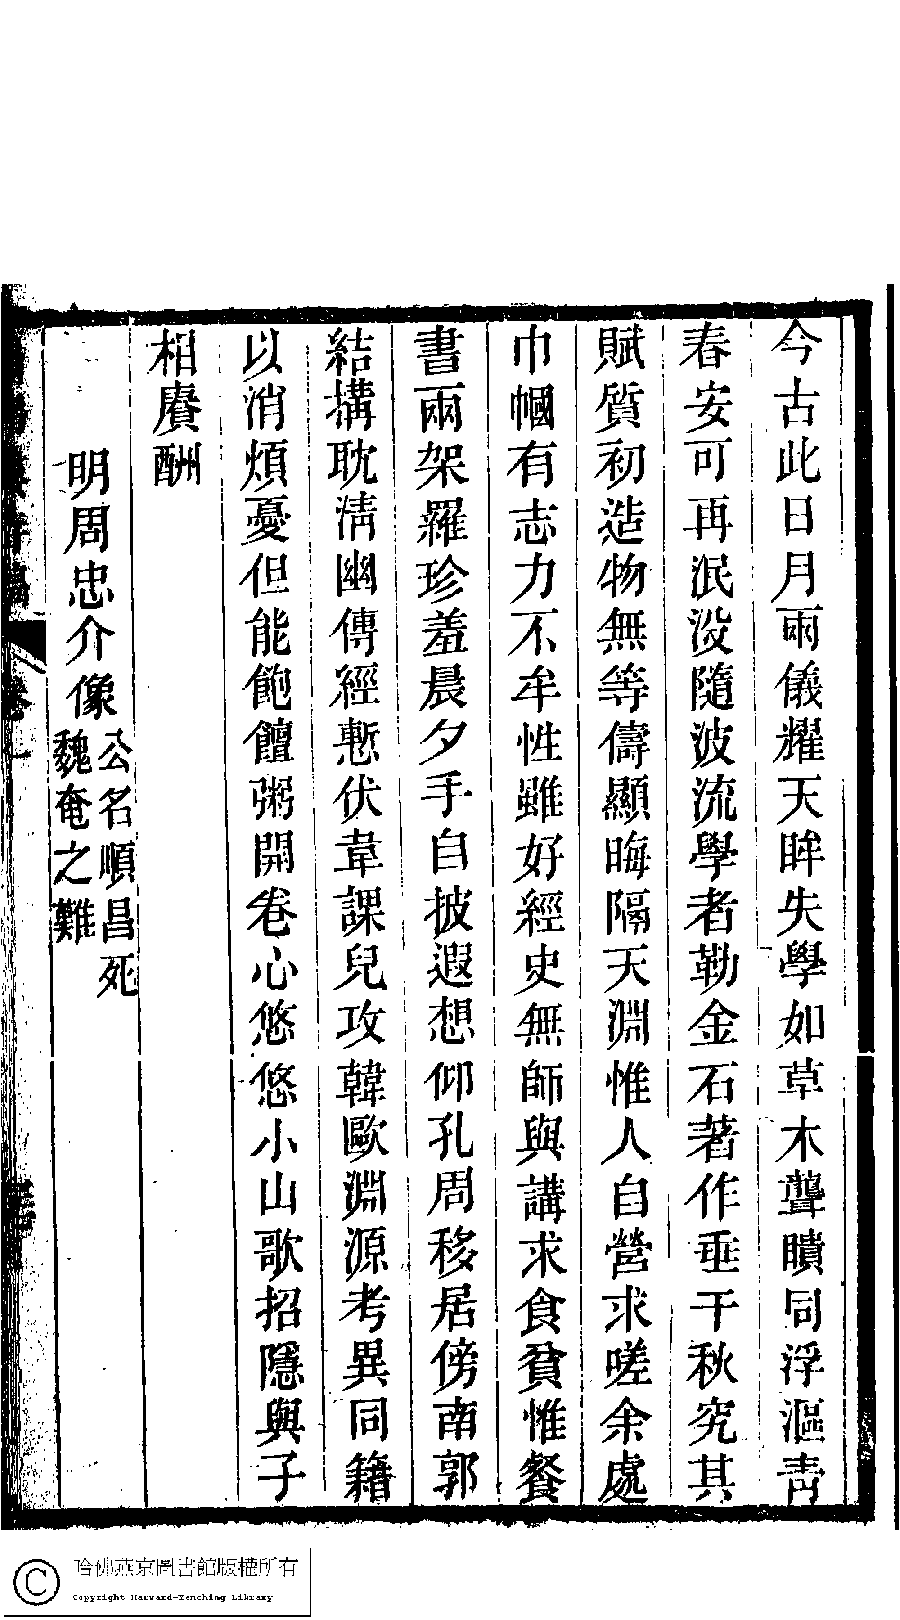 今古此日月兩儀耀天眸失學如草木聾聵同浮漚青
春安可再泯没隨波流學者勒金石著作垂千秋究其
賦質初造物無等儔顯晦隔天淵惟人自營求嗟余處
巾幗有志力不牟性雖好經史無師與講求食貧惟餐
書兩架羅珍羞晨夕手自披遐想仰孔周移居傍南郭
結搆耽淸幽傳經慙伏韋課兒攻韓歐淵源考異同籍
以消煩憂但能飽饘粥開卷心悠悠小山歌招隱與子
相賡酬
明周忠介像
公名順昌死
魏奄之難
哈佛燕京圖書館版權所有
Copyright Harvard-Yenching Library